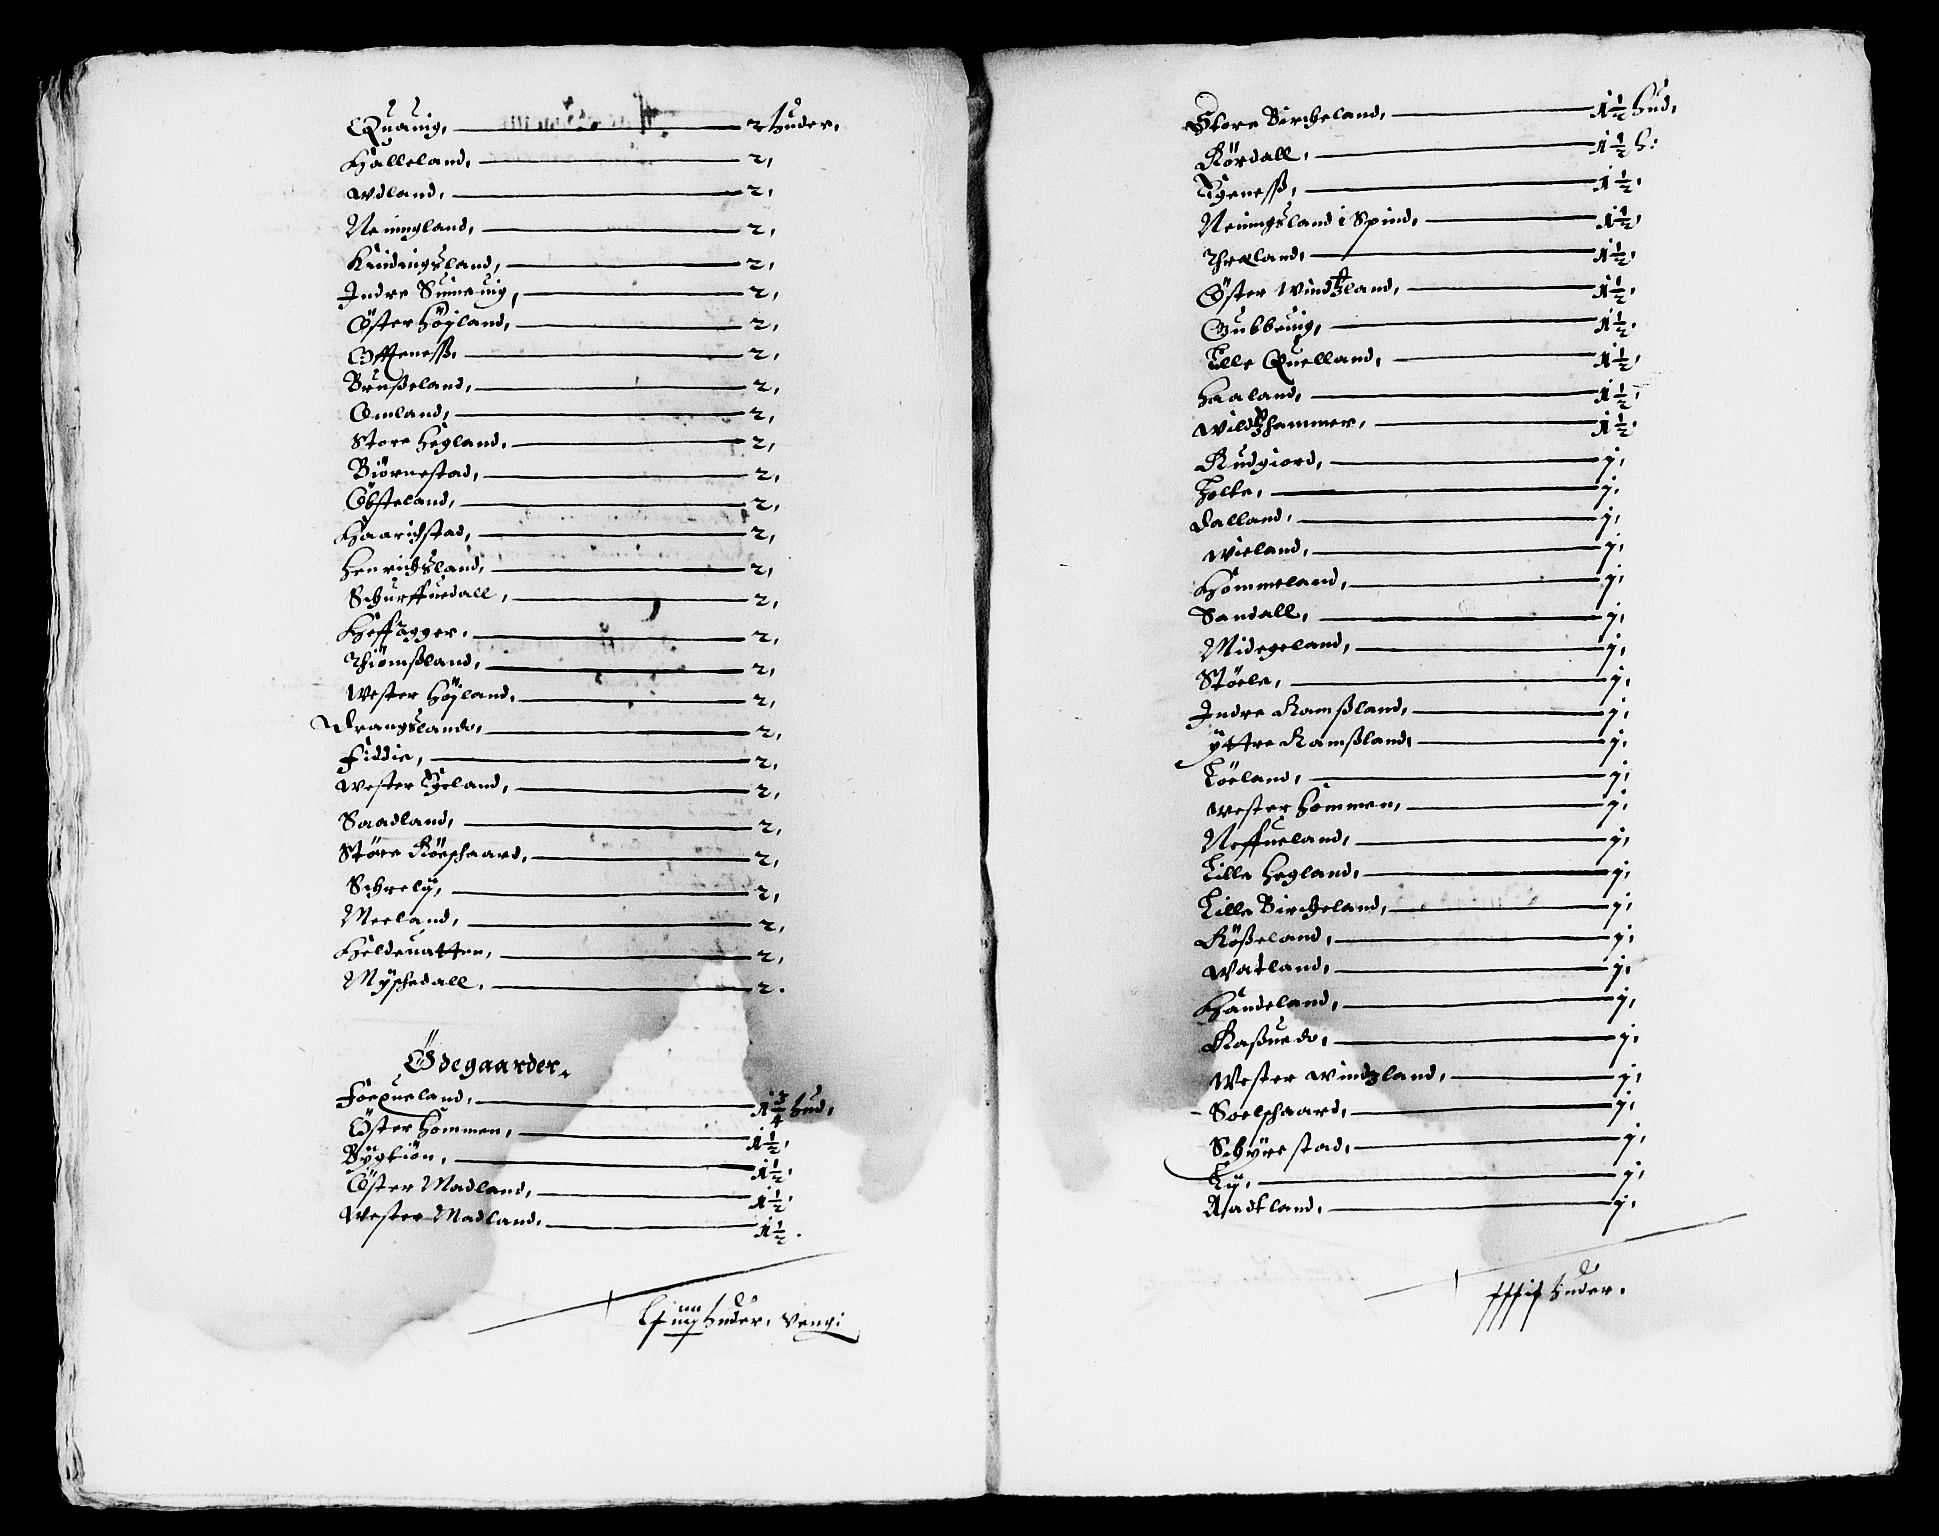 Quauig, 2 huder,
Halleland, 2,
Wdland, 2,
Neningland, 2,
Kindingsland, 2,
Indre Suineuig, 2,
Öster Höjland, 2,
Offteness, 2,
Brußeland, 2,
Omland, 2,
Store Hegland, 2,
Biörnestad, 2,
Öbsteland, 2,
Haarichstad, 2,
Henrichsland, 2,
Schurffuedall, 2,
Heffagger, 2,
Thiömßland, 2,
Wester Höjland, 2,
Drangslando, 2,
Fiddie, 2,
Wester Egeland, 2,
Saadland, 2,
Störe Röeschaard, 2,
Schrelÿ, 2,
Meeland, 2,
Heldeuatten, 2,
Mÿschedall, 2.
Ödegaarder.
Foequeland, 1 3/4 hud,
Öster Hommen, 1 1/2,
Bÿgtiön, 1 1/2,
Öster Madland, 1 1/2,
Wester Madland, 1 1/2.
huder,
Store Bircheland, 1 1/2 Hud,
Rördall, 1 1/2 h:
Egeness, 1 1/2,
Neningsland i Spind, 1 1/2,
Threland, 1 1/2,
Öster Windtzland, 1 1/2,
Gubbeuig, 1 1/2,
Lille Quelland, 1 1/2,
Haaland, 1 1/2,
Wildtzhammer, 1 1/2,
Rudgiord, 1,
Holte, 1,
Dalland, 1,
Wieland, 1,
Hommeland, 1,
Sandall, 1,
Midegeland, 1,
Stöele, 1,
Indre Ramßland, 1,
ÿttre Ramßland, 1,
Löeland, 1,
Wester Hommen, 1,
Neffueland, 1,
Lille Hegland, 1,
Lille Bircheland, 1,
Rößeland, 1,
Watland, 1,
Handeland, 1,
Raßuedo, 1,
Wester Windzland, 1,
Soelschaard, 1,
Schÿrestad, 1,
Lÿ, 1,
Aadtland, 1,
huder.